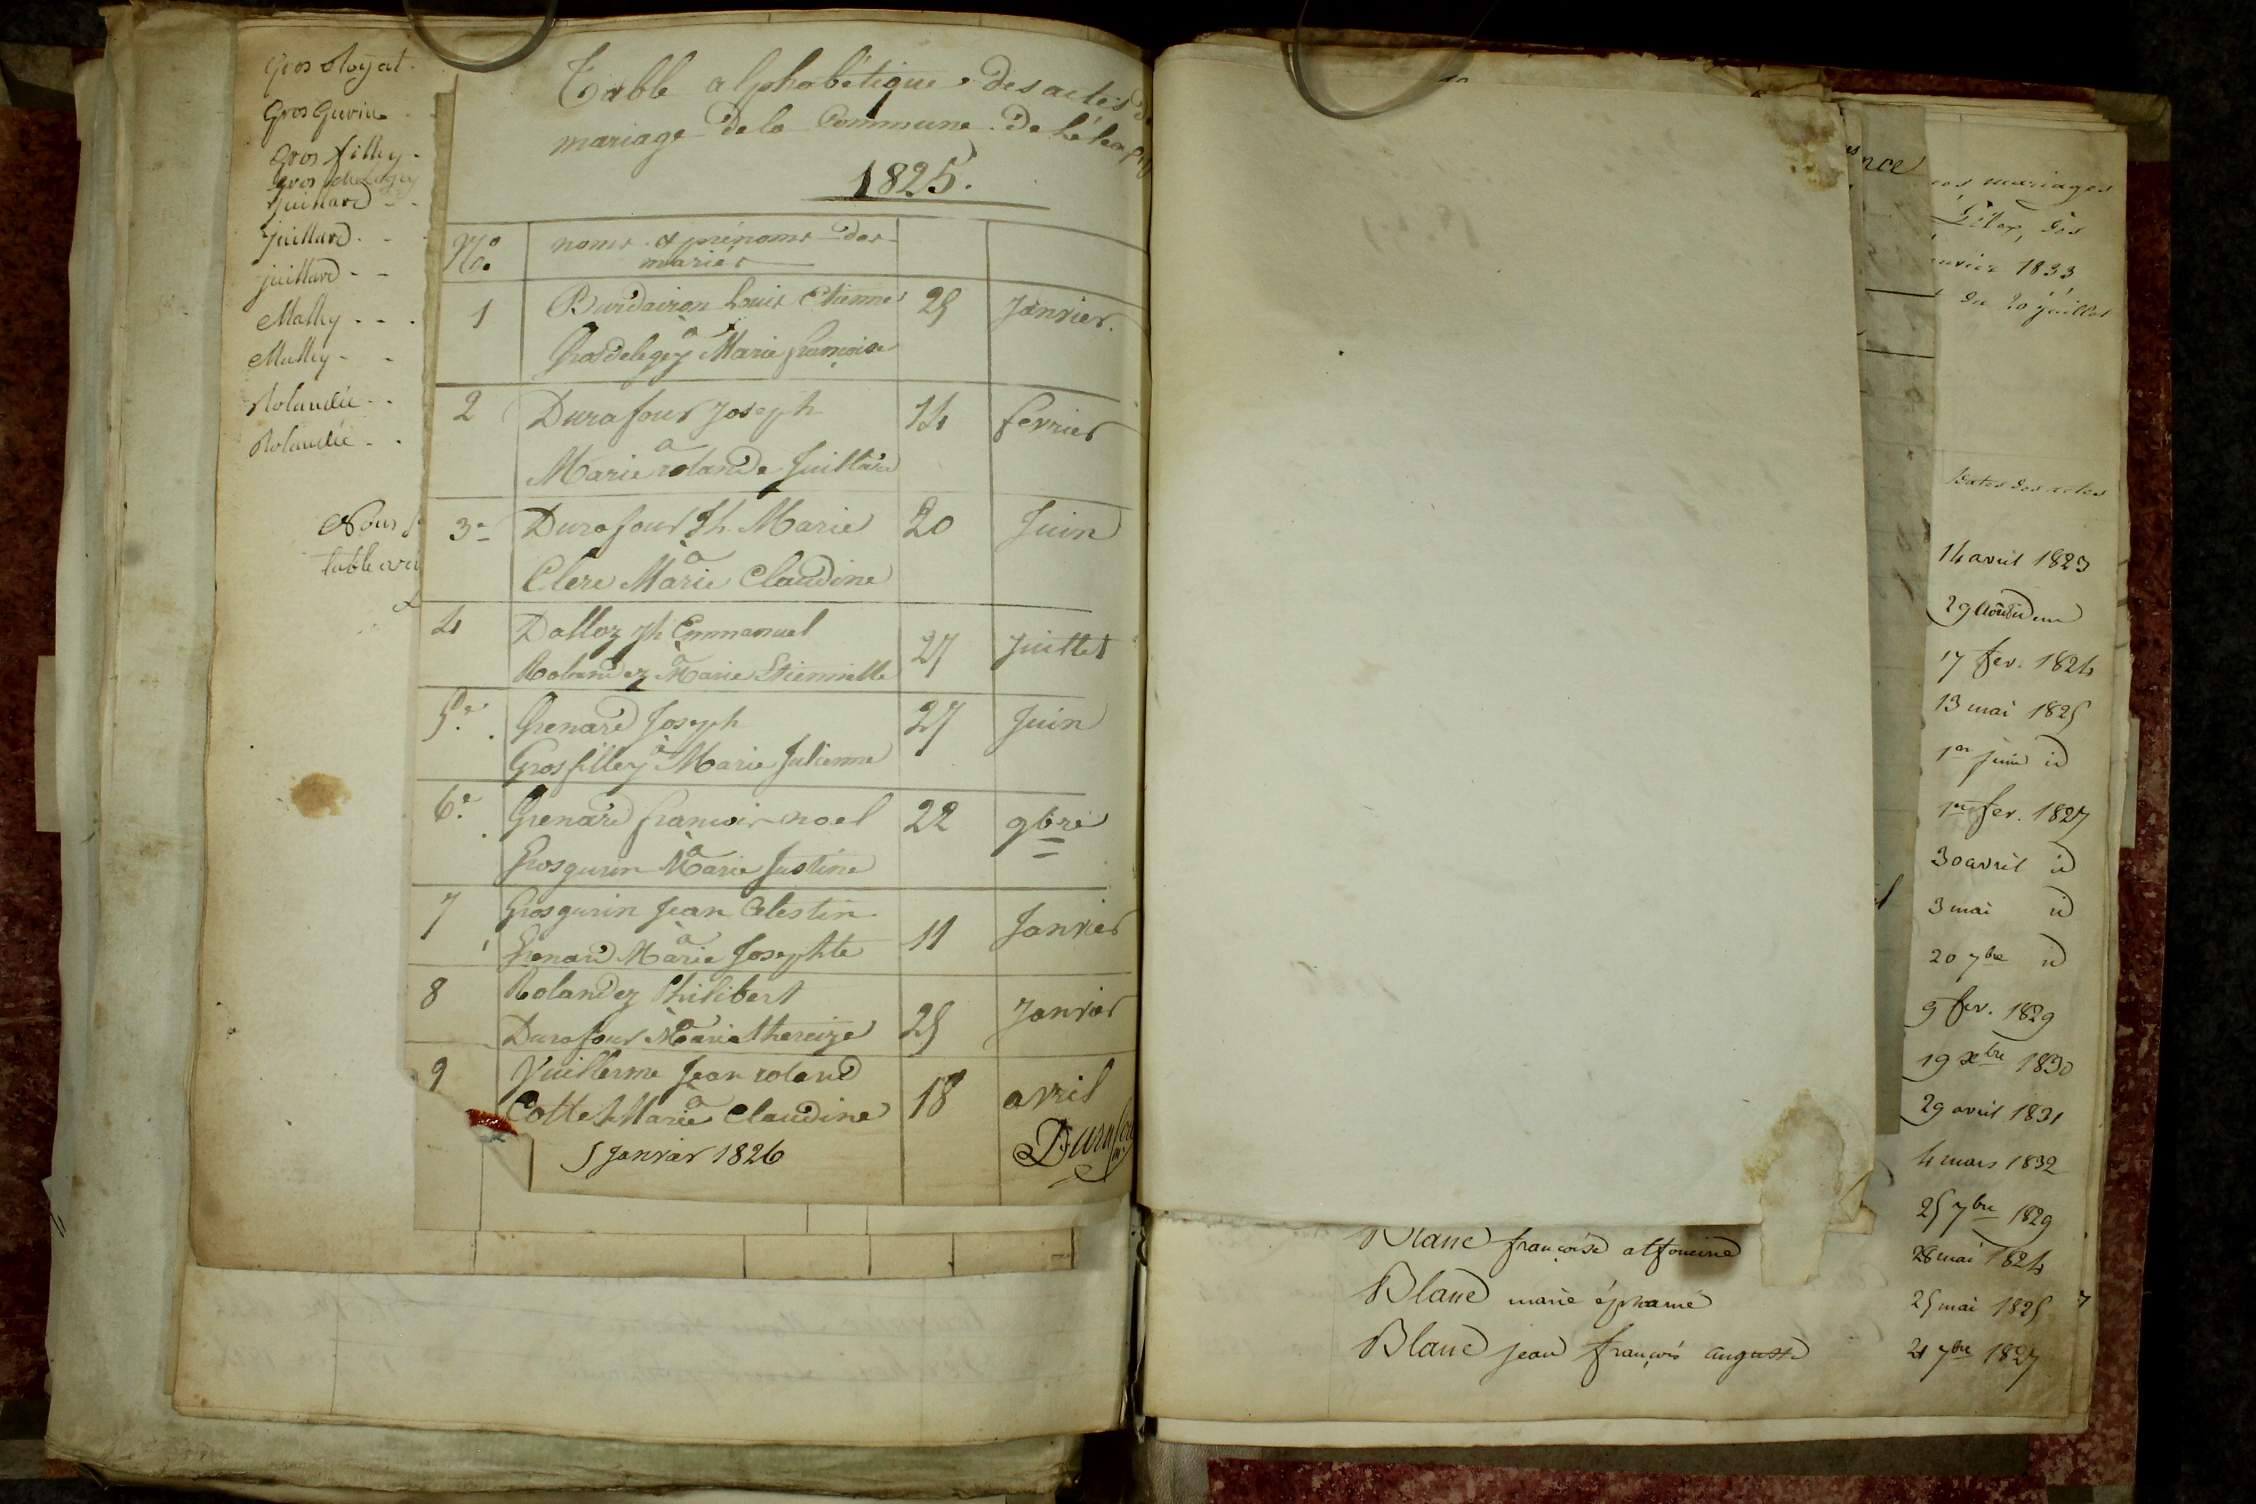 Gros
Gros Gurin
Gros filley
Gros
Juillard
Juillard
Juillard
Mathy
Mathy
Rolandez
Rolandez
Nous
table
Table alphabétique des actes de
mariage de la Commune de Lé
1825.
No. noms & prénoms des
mariés
1 Burdairon Louis Etienne 25 Janvier.
à
Marie françoise
2 Durafour Joseph 14 fevrier
a
Marie rolande Juillard
3e Durafour Jh. Marie 20 Juin
à
Clerc Marie Claudine
4 Dalloz Jh Emmanuel 27 Juillet
à
Rolandez Marie Etiennette
5e. Grenard Joseph 27 Juin
à
Grosfilley Marie Julienne
6e. Grenard francois noel 22 9bre
à
Grosgurin Marie Justine
7 Grosgurin Jean Celestin 11 Janvier
à
Grenard Marie Josephte
8 Rolandez Philibert 25 Janvier
à
Durafour Marie thereize
9 Vuillerme Jean roland 18 avril
à
Cottet Marie Claudine
5 Janvier 1826 Durafour
nce
mariages
1833
du 20 juillet
Dates des actes
14 avril 1823
29 Août idem
17 fev. 1824
13 mai 1825
1er juin id
1er fev. 1827
30 avril id
3 mai id
20 7bre id
9 fev. 1829
19 xbre 1830
29 avril 1831
4 mars 1832
25 7bre 1829
Blanc françoise alfonsine 28 mai 1824
Blanc marie 25 mai 1825
Blanc jean françois auguste 21 7bre 1827